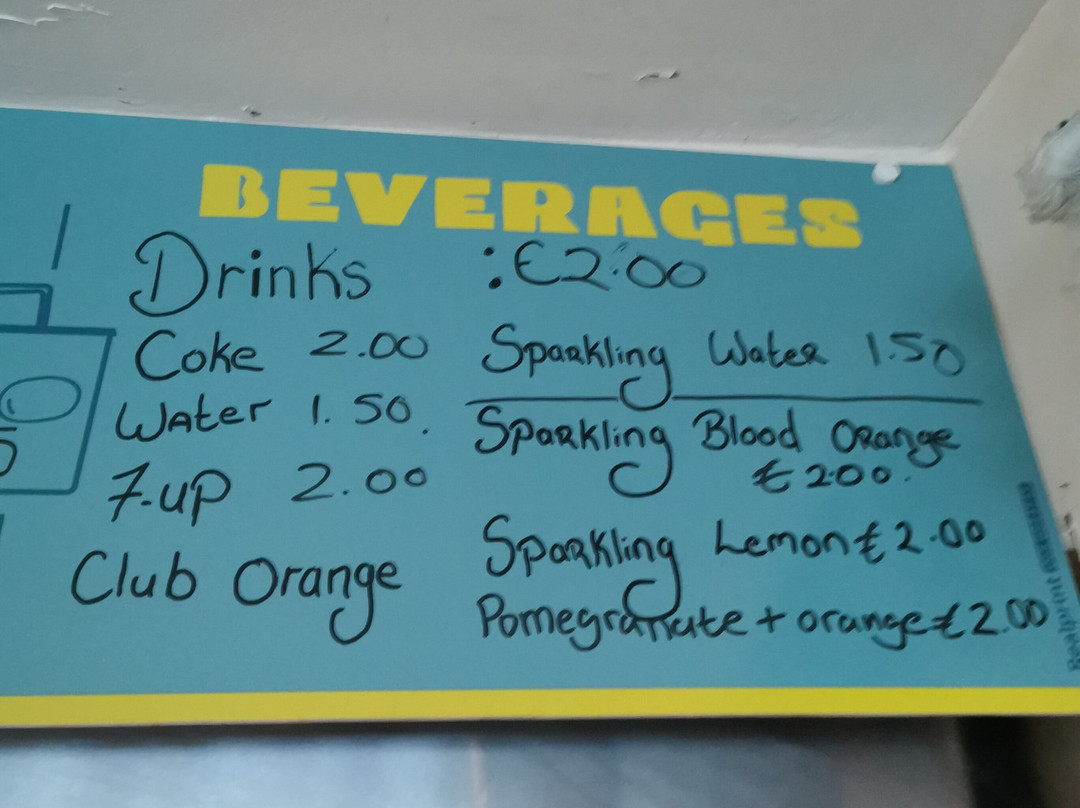 BEVERAGES
Drinks :€2.00
Coke 2.00
Water 1.50.
7-up 2.00
Club Orange
Sparkling Water 1.50
Sparkling Blood Orange
€2.00.
Sparkling Lemon €2.00
Pomegranate + orange €2.00